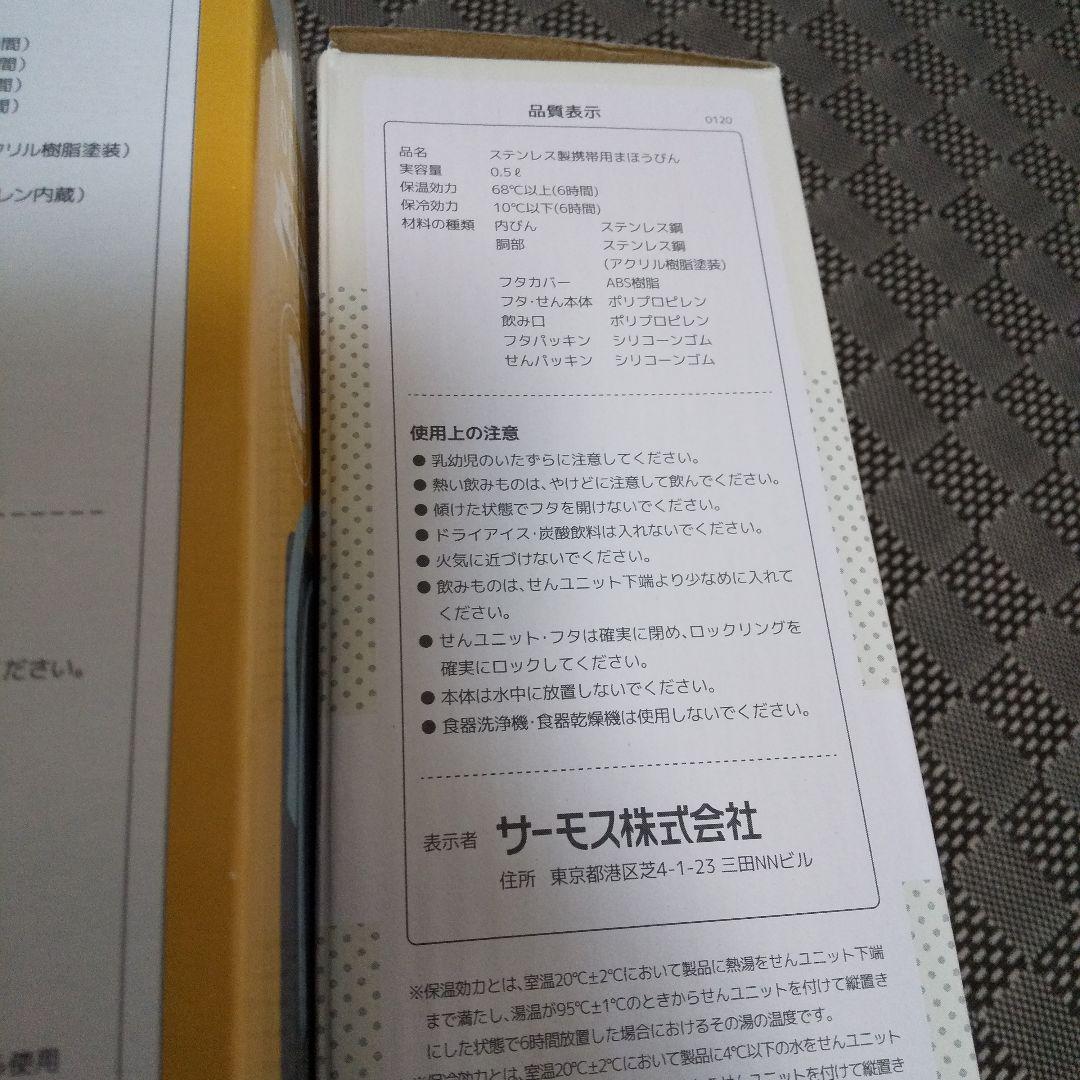 間)
間)
間)
間)
クリル樹脂塗装)
レン内蔵)
ださい。
使用
品質表示
0120
品名 ステンレス製携帯用まほうびん
実容量 0.5ℓ
保温効力 68℃以上(6時間)
保冷効力 10℃以下(6時間)
材料の種類 内びん ステンレス鋼
胴部 ステンレス鋼
(アクリル樹脂塗装)
フタカバー ABS樹脂
フタ・せん本体 ポリプロピレン
飲み口 ポリプロピレン
フタパッキン シリコーンゴム
せんパッキン シリコーンゴム
使用上の注意
● 乳幼児のいたずらに注意してください。
● 熱い飲みものは、やけどに注意して飲んでください。
● 傾けた状態でフタを開けないでください。
● ドライアイス・炭酸飲料は入れないでください。
● 火気に近づけないでください。
● 飲みものは、せんユニット下端より少なめに入れて
ください。
● せんユニット・フタは確実に閉め、ロックリングを
確実にロックしてください。
● 本体は水中に放置しないでください。
● 食器洗浄機・食器乾燥機は使用しないでください。
表示者 サーモス株式会社
住所 東京都港区芝4-1-23 三田NNビル
※保温効力とは、室温20℃±2℃において製品に熱湯をせんユニット下端
まで満たし、湯温が95℃±1℃のときからせんユニットを付けて縦置き
にした状態で6時間放置した場合におけるその湯の温度です。
※保冷効力とは、室温20℃±2℃において製品に4℃以下の水をせんユニット
せんユニットを付けて縦置き